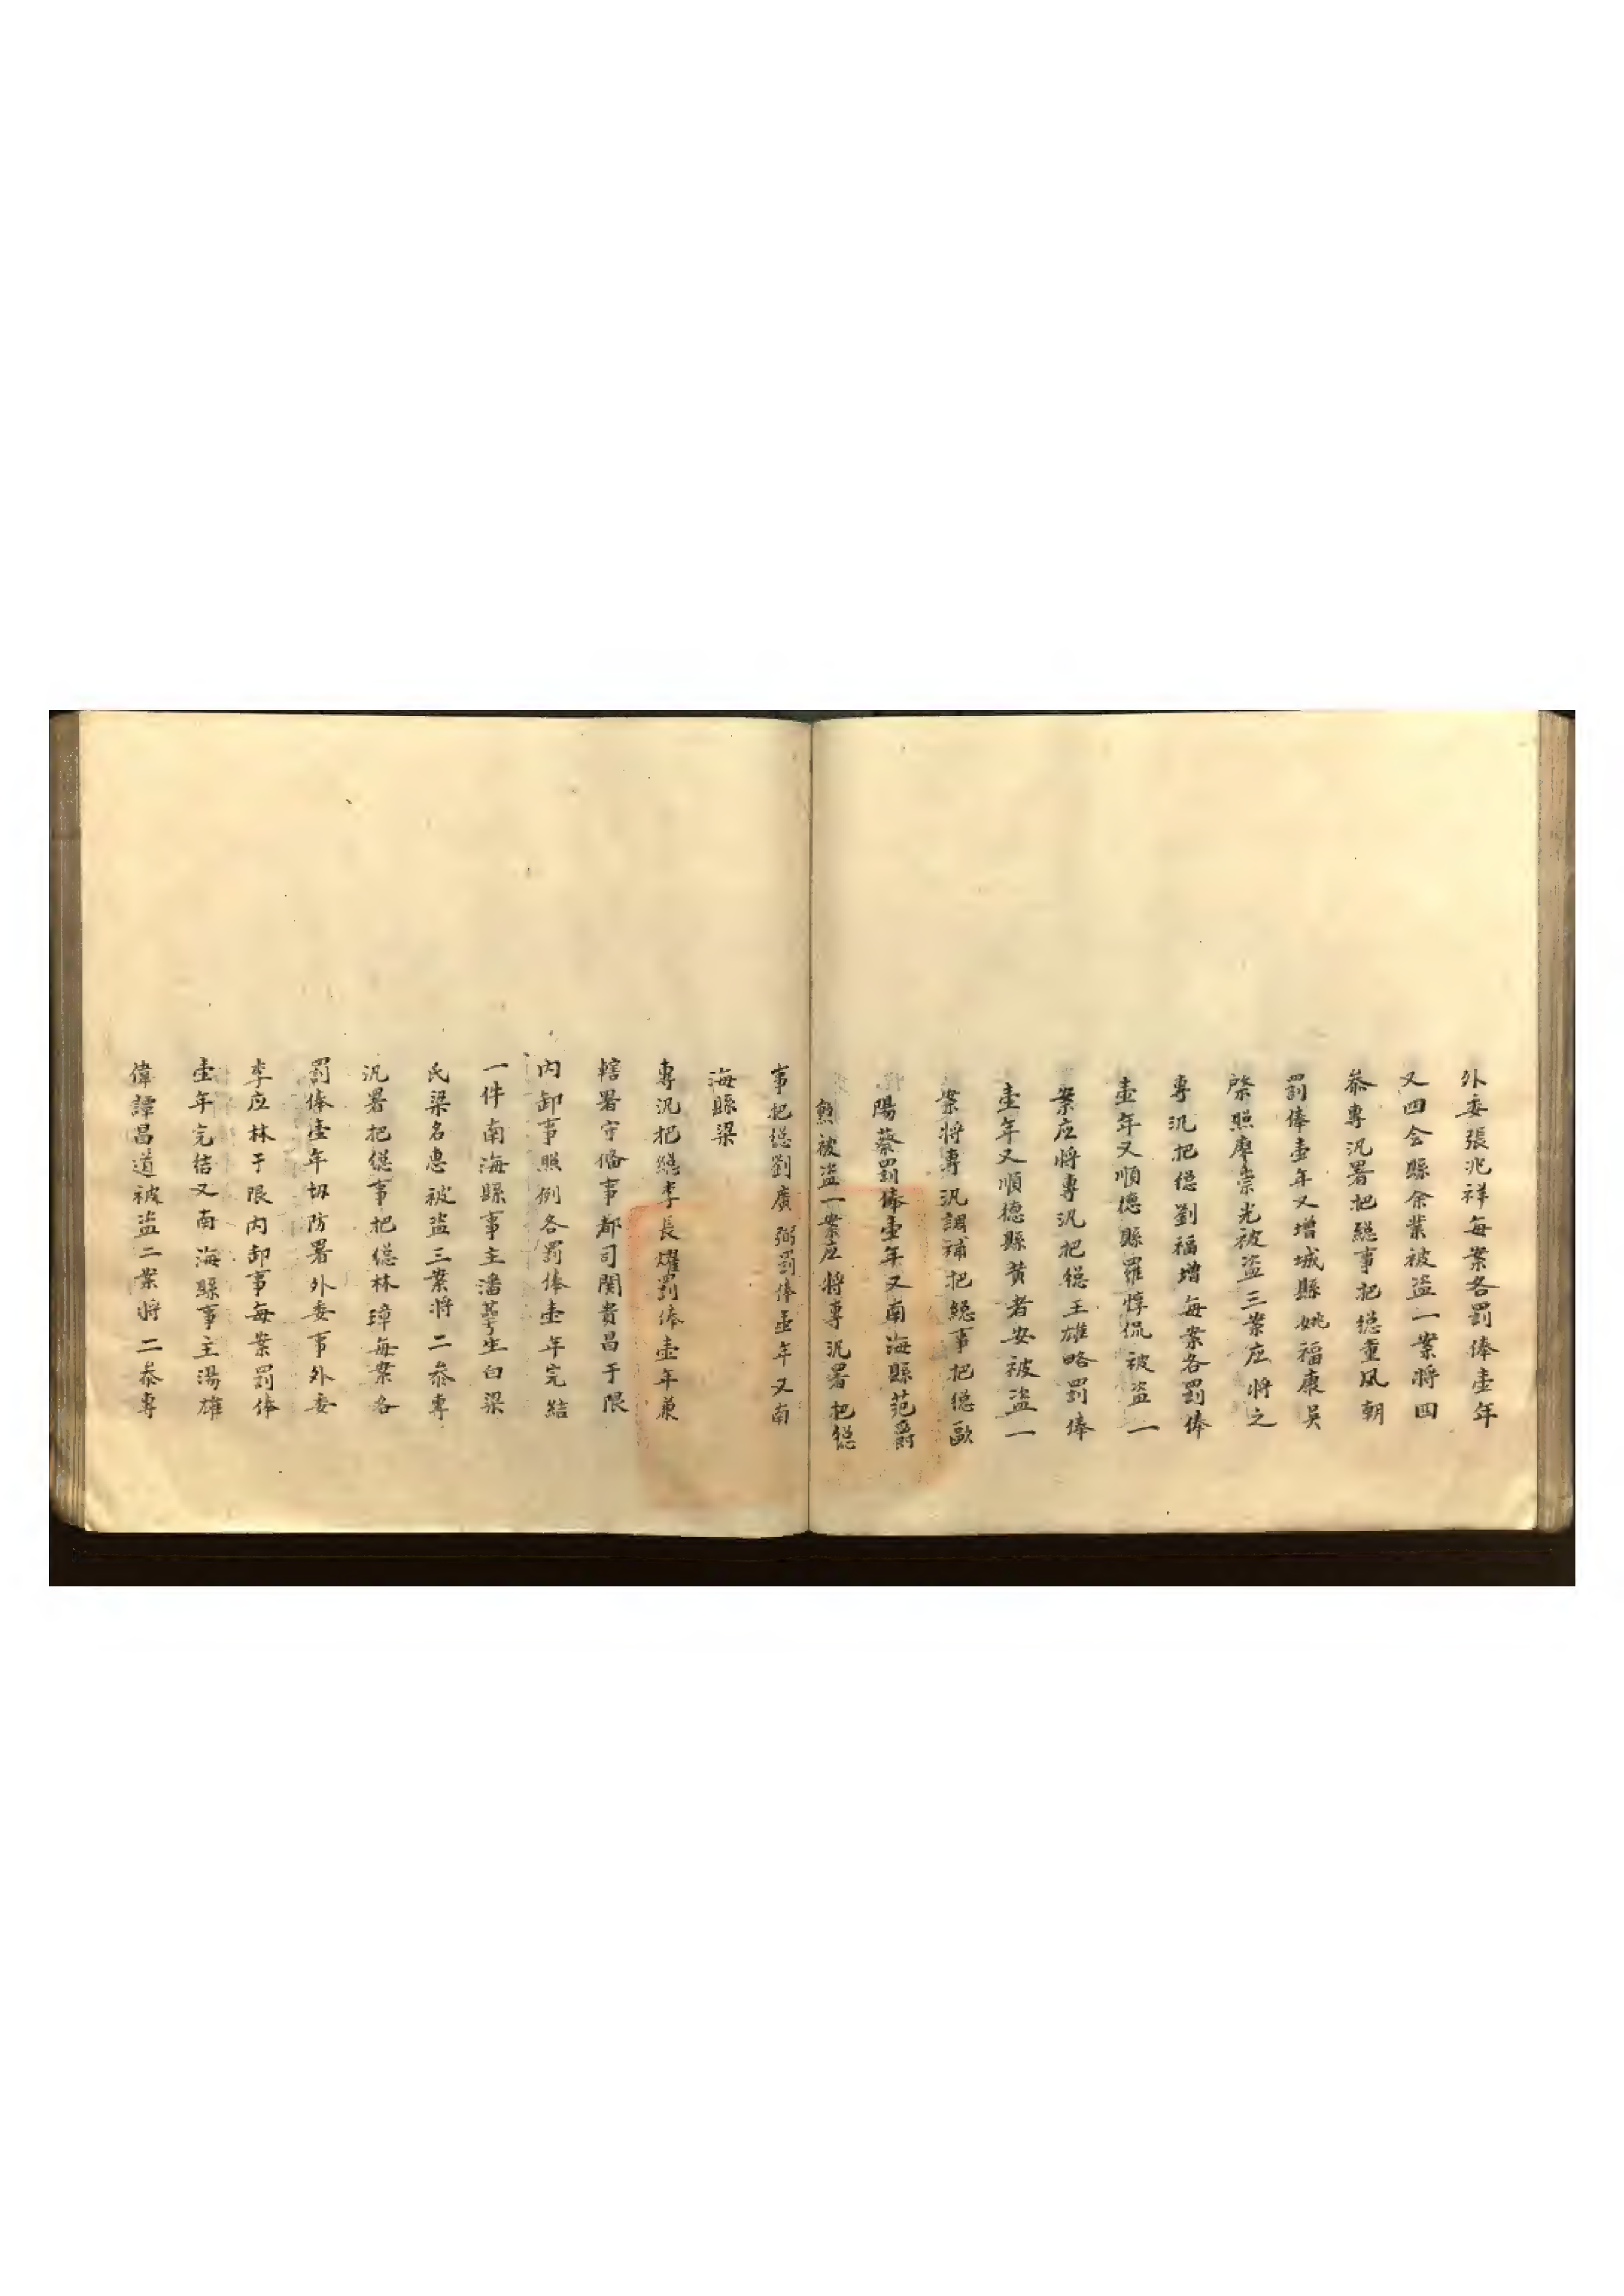 外委張兆祥每案各罰俸壹年
又四会縣余業被盗一案将四
叅專汛署把総事把総董风朝
罰俸壹年又增城縣姚福康吳
棨照廖崇光被盗三案应将之
專汛把総劉福增每案各罰俸
壹年又順德縣羅惇侃被盗一
案应将專汛把総王雄略罰俸
壹年又順德縣黄者安被盗一
案将專汛調補把総事把総歐
陽蔡罰俸壹年又南海縣范爵
勲被盗一案应将專汛署把総
事把総劉廣弼罰俸壹年又南
海縣梁
專汛把総李長燿罰俸壹年兼
轄署守俻事都司閔貴昌于限
内卸事照例各罰俸壹年完結
一件南海縣事主潘蕚生白梁
氏梁名惠被盗三案将二叅專
汛署把総事把総林璋每案各
罰俸壹年协防署外委事外委
李应林于限内卸事每案罰俸
壹年完结又南海縣事主湯雄
偉譚昌道被盗二案将二叅專